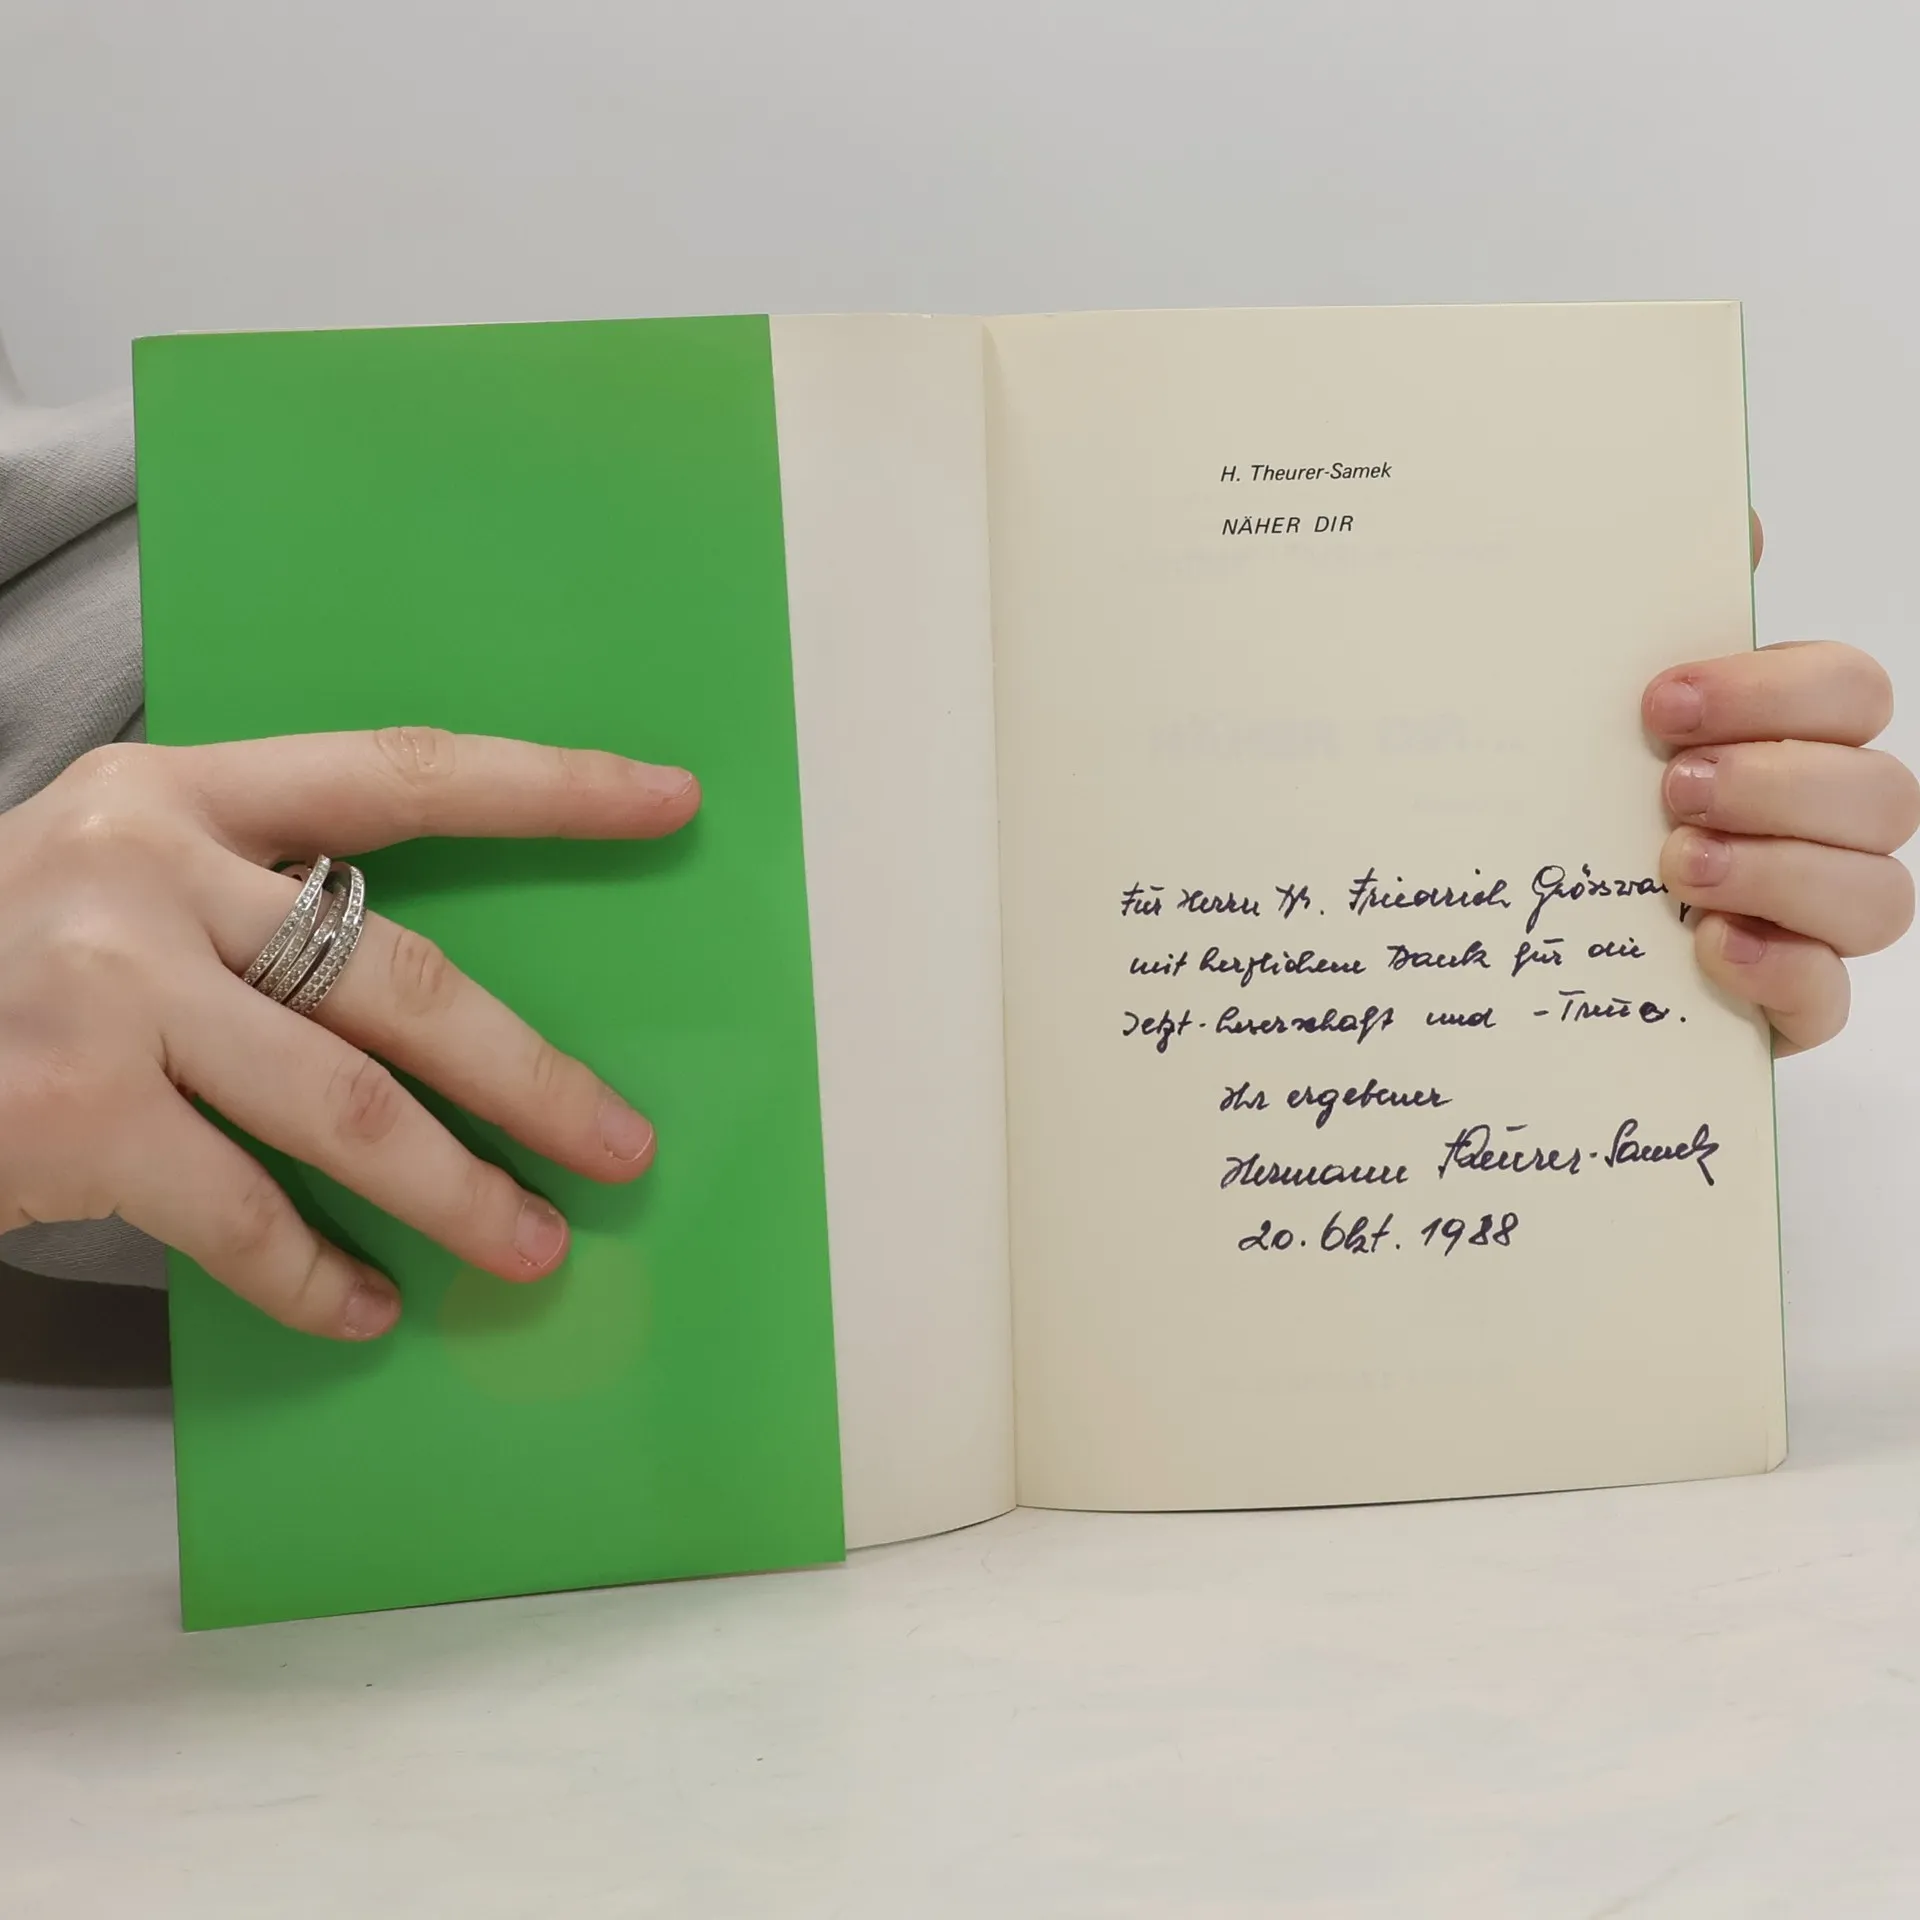 H. Theurer-Samek
NÄHER DIR
Für Herrn Dr. Friedrich
mit herzlichem Dank für die
Jetzt-Leserschaft und -Treue.
Ihr ergebener
Hermann Theurer-Samek
20. Okt. 1988